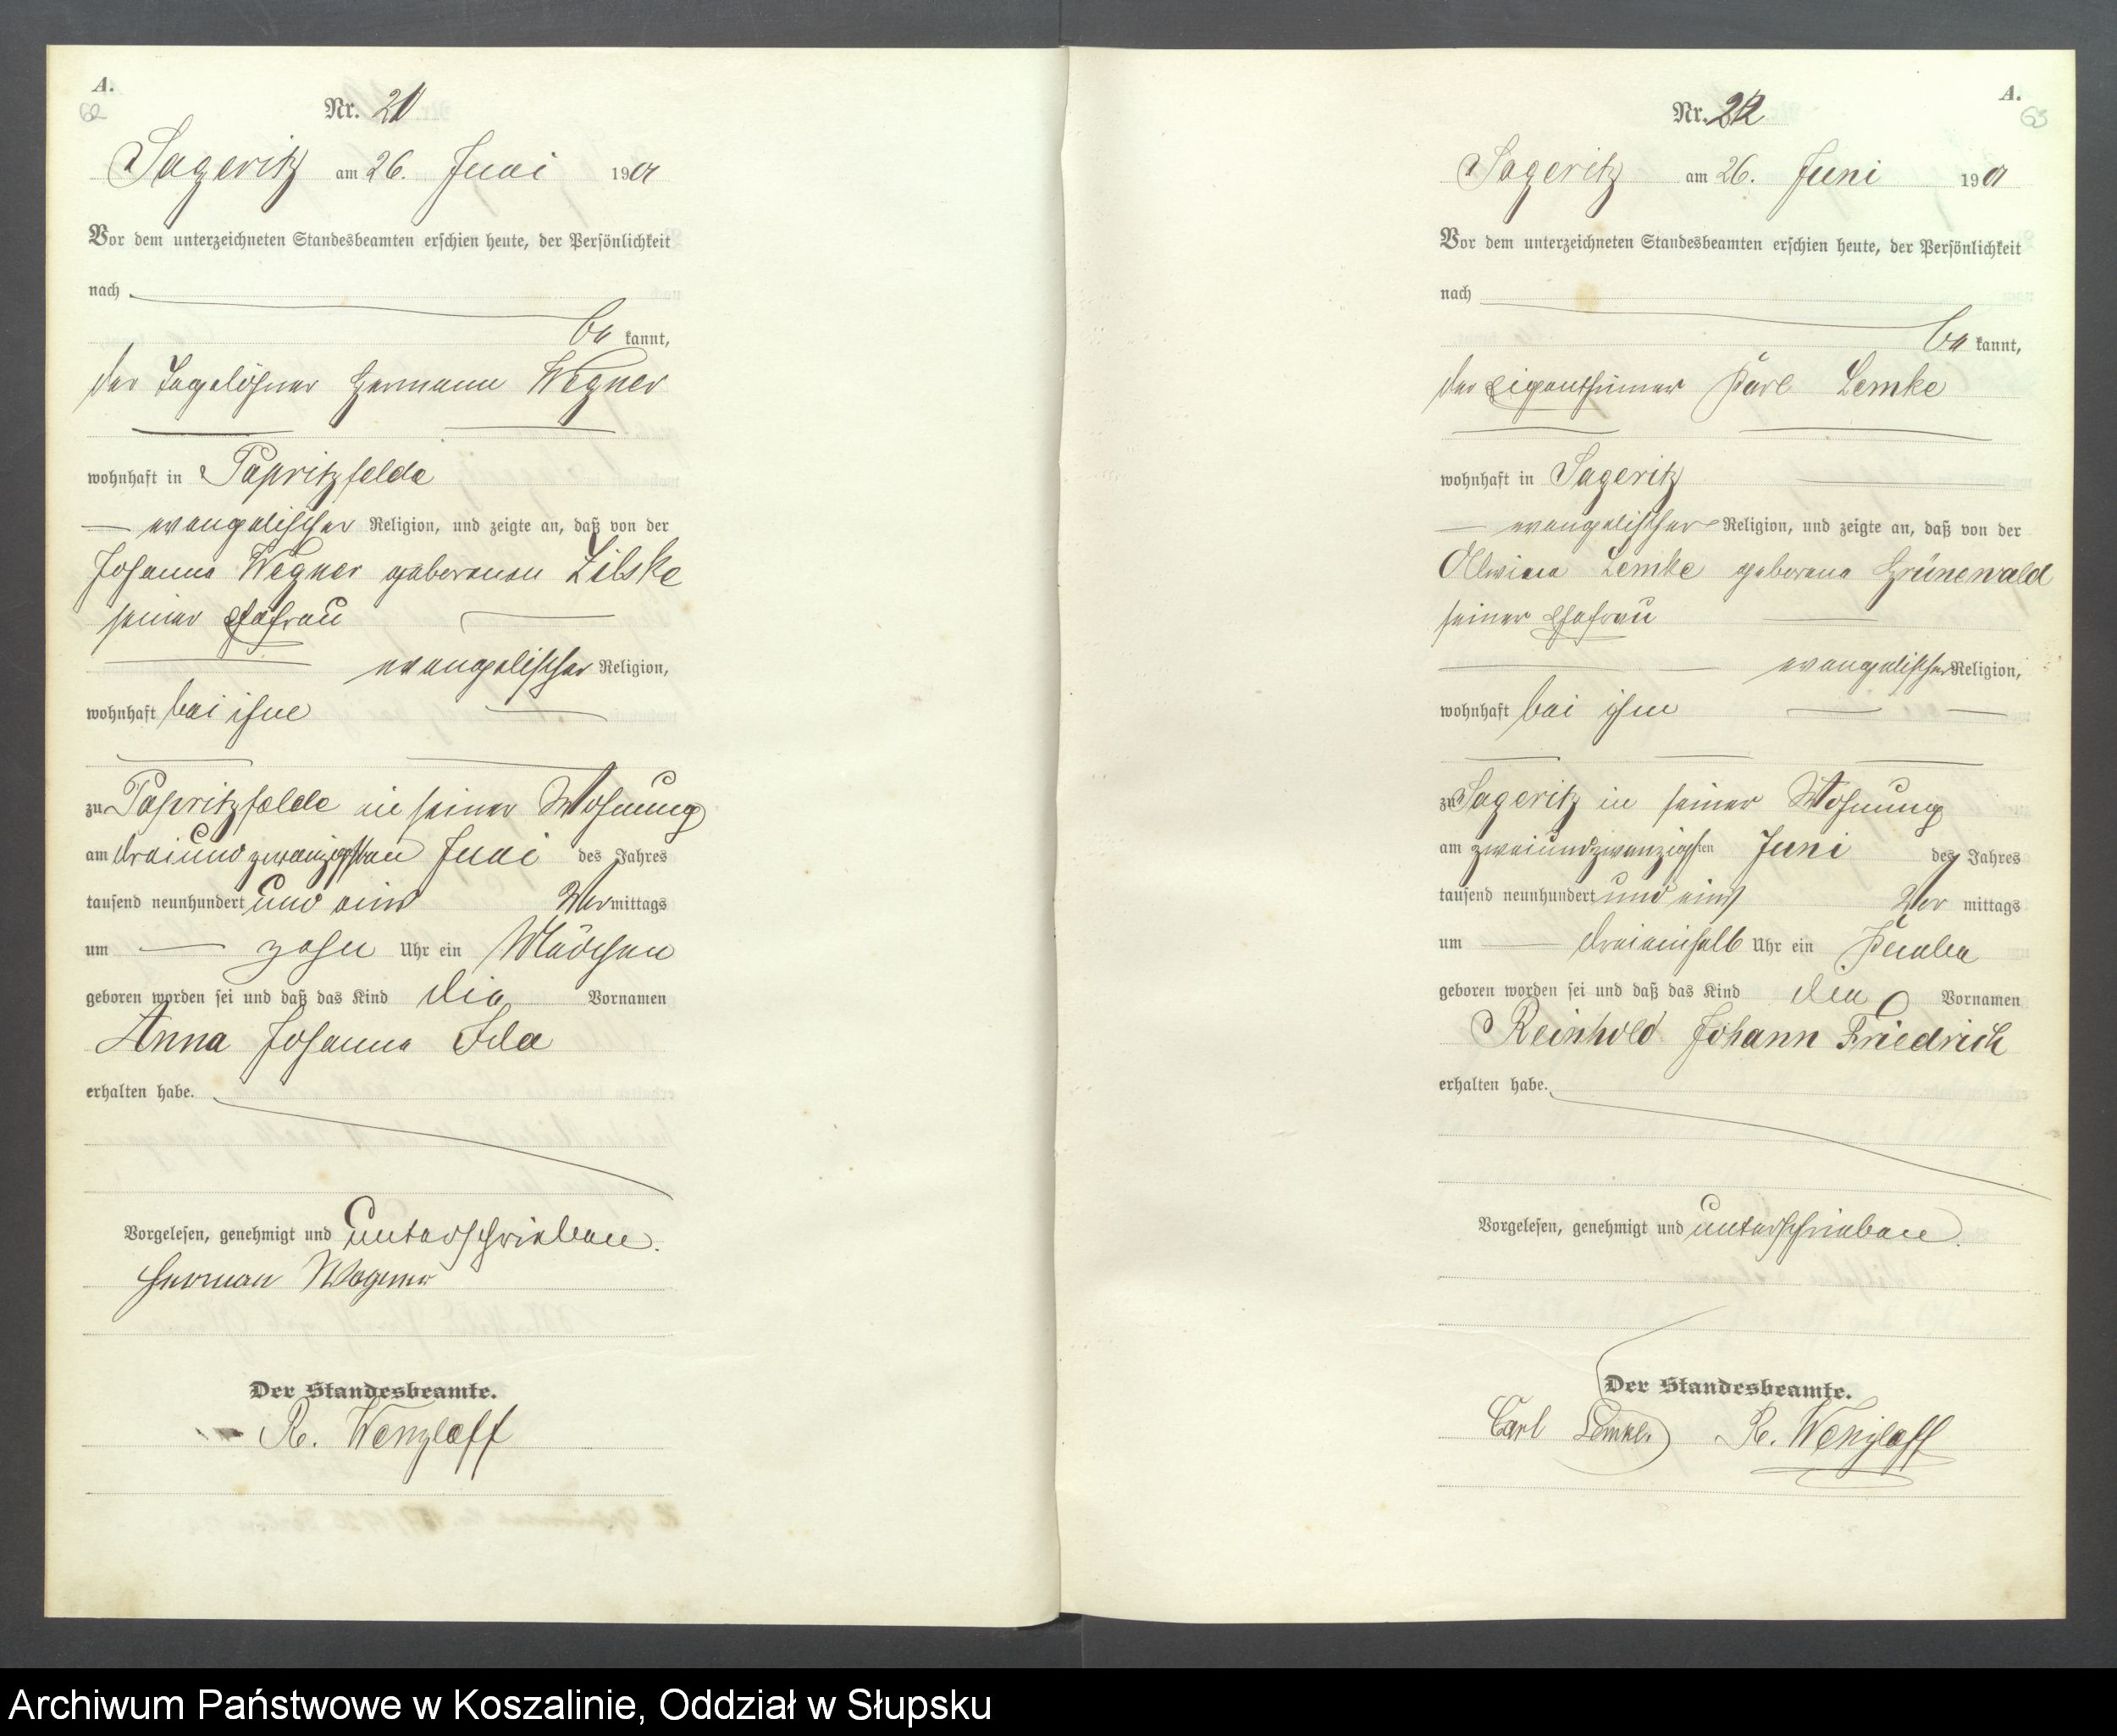 A.
62
Nr. 21
Sageritz am 26. Juni 1901
Vor dem unterzeichneten Standesbeamten erschien heute, der Persönlichkeit
nach
be kannt,
der Tagelöhner Hermann Wegner
wohnhaft in Papritzfelde
evangelischer Religion, und zeigte an, daß von der
Johanna Wegner geborenen Zilske
seiner Ehefrau
evangelischer Religion,
wohnhaft bei ihm
zu Papritzfelde in seiner Wohnung
am dreiundzwanzigsten Juni des Jahres
tausend neunhundert und eins Vor mittags
um zehn Uhr ein Mädchen
geboren worden sei und daß das Kind die Vornamen
Anna Johanna Ida
erhalten habe.
Vorgelesen, genehmigt und unterschrieben.
Herman Wegner
Der Standesbeamte.
R. Wenzlaff
A.
63
Nr. 22
Sageritz am 26. Juni 1901
Vor dem unterzeichneten Standesbeamten erschien heute, der Persönlichkeit
nach
be kannt,
der Eigenthümer Karl Lemke
wohnhaft in Sageritz
evangelischer Religion, und zeigte an, daß von der
Alwine Lemke geborene Grünewald
seiner Ehefrau
evangelischer Religion,
wohnhaft bei ihm
zu Sageritz in seiner Wohnung
am zweiundzwanzigsten Juni des Jahres
tausend neunhundert und eins Vor mittags
um dreieinhalb Uhr ein Knabe
geboren worden sei und daß das Kind die Vornamen
Reinhold Johann Friedrich
erhalten habe.
Vorgelesen, genehmigt und unterschrieben.
Der Standesbeamte.
Carl Lemke R. Wenzlaff
Archiwum Państwowe w Koszalinie, Oddział w Słupsku